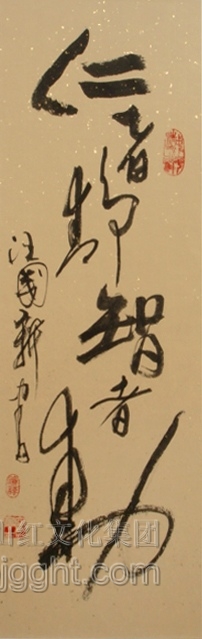 仁者静智者動
汪國新
山红文化集团
jgght.com